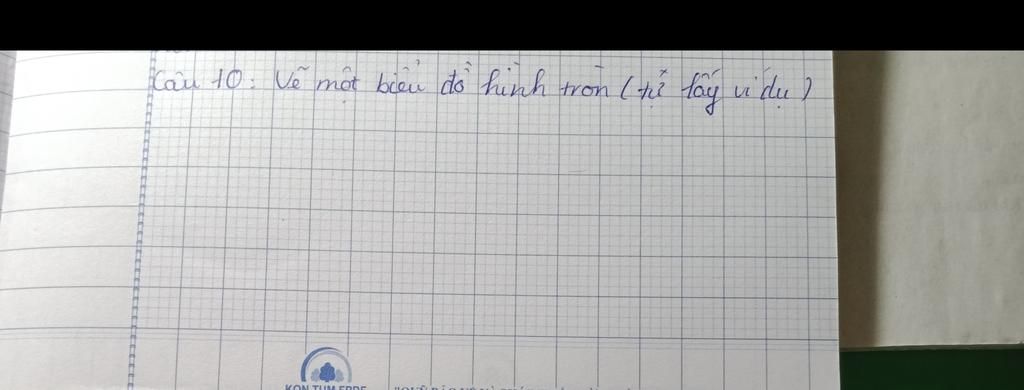 Câu 10: Vẽ một biểu đồ hình tròn (tự lấy ví dụ)
KON TUM